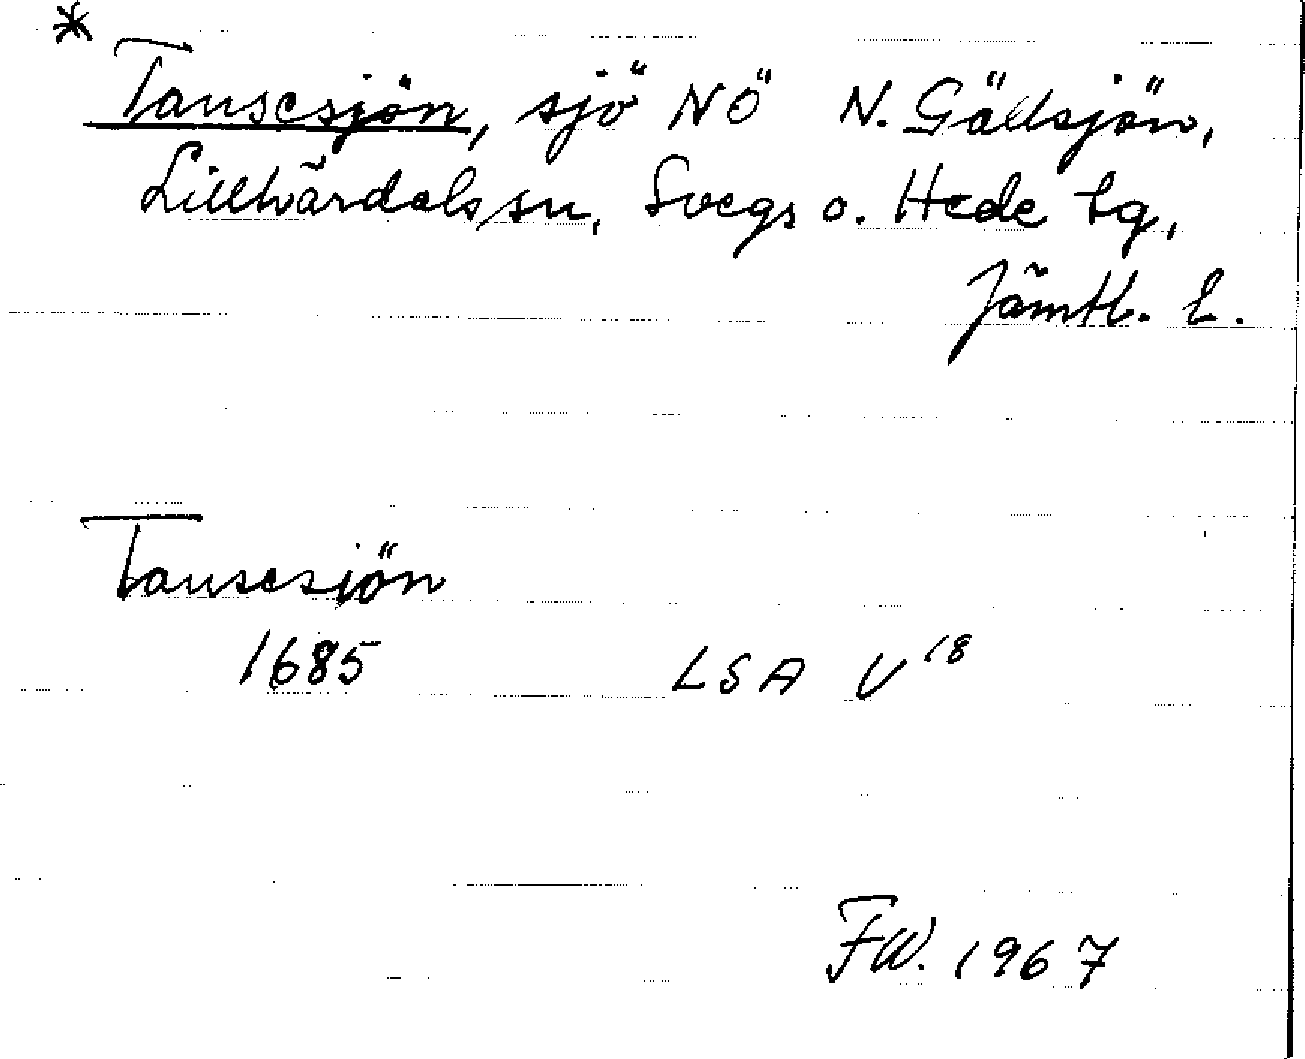 *
Tansesjön, sjö NÖ N. Gällsjön,
Lillhärdals sn, Svegs o. Hede tg,
Jämtl. l.
Tansesjön
1685 LSA V¹⁸
F.W. 1967